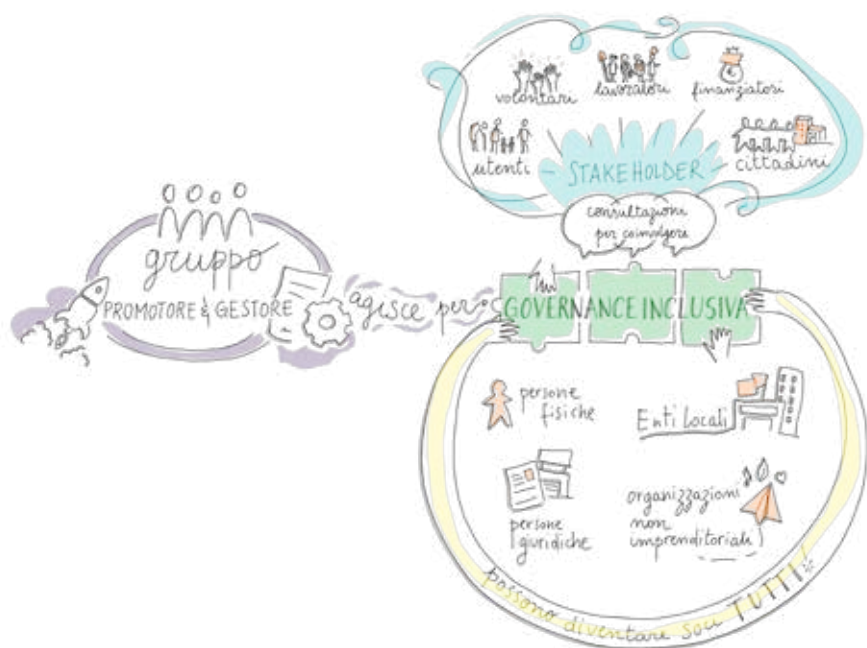 volontari
lavoratori
finanziatori
utenti
STAKEHOLDER
cittadini
consultazione
per coinvolgere
gruppo
PROMOTORE & GESTORE
agisce per:
GOVERNANCE INCLUSIVA
persone
fisiche
Enti Locali
persone
giuridiche
organizzazioni
non
imprenditoriali
possono diventare soci TUTTI!